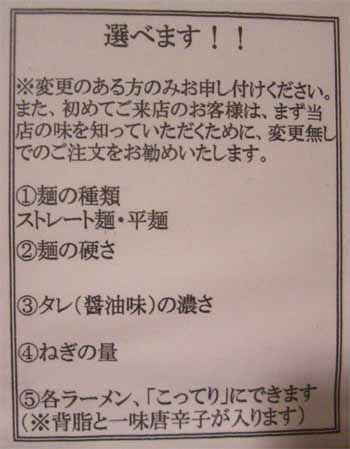 選べます！！
※変更のある方のみお申し付けください。
また、初めてご来店のお客様は、まず当
店の味を知っていただくために、変更無し
でのご注文をお勧めいたします。
①麺の種類
ストレート麺・平麺
②麺の硬さ
③タレ（醤油味）の濃さ
④ねぎの量
⑤各ラーメン、「こってり」にできます
（※背脂と一味唐辛子が入ります）